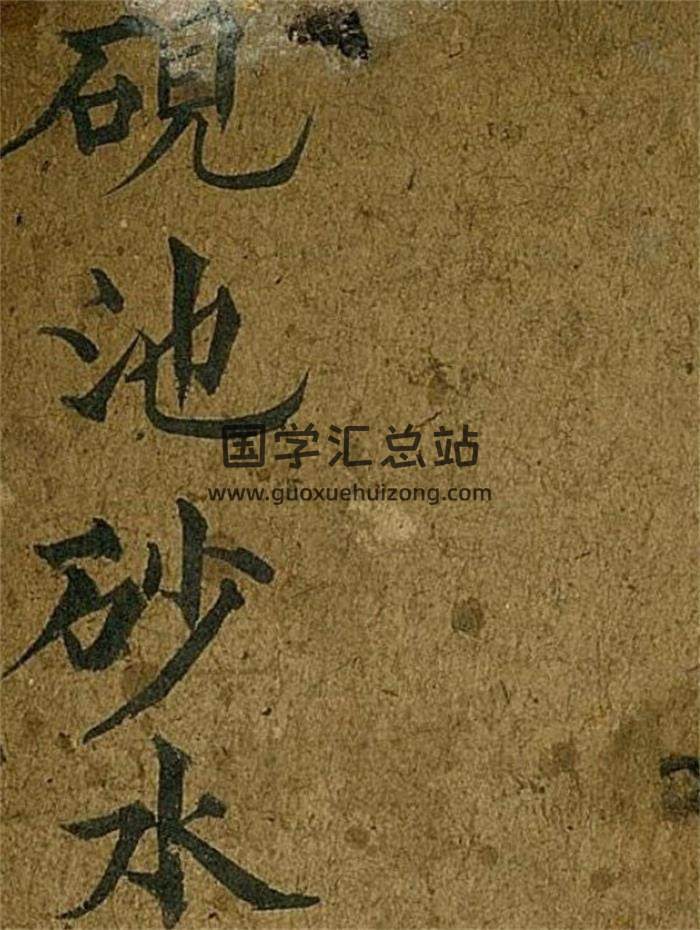 硯池砂水
国学汇总站
www.guoxuehuizong.com